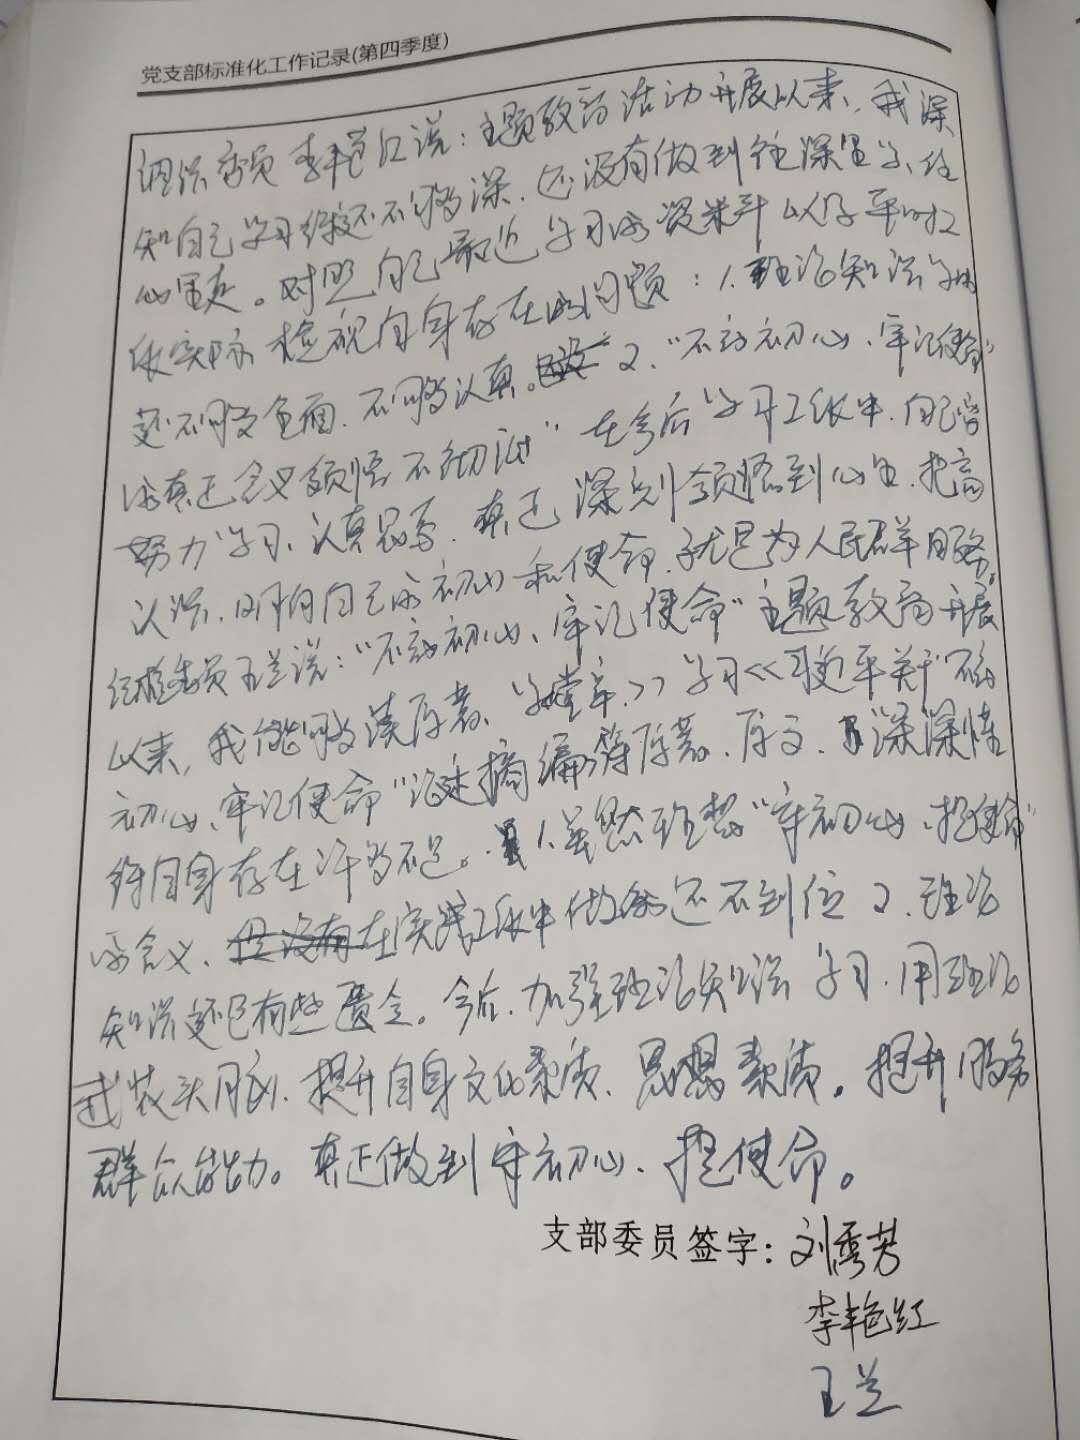 党支部标准化工作记录(第四季度)
组织委员李艳红说：主题教育活动开展以来，我深
知自己学习得还不够深，还没有做到往深里学、往
心里走。对照自己最近学习的效果并以及平时工
作实际检视自身存在的问题：1、理论知识学的
还不够全面，不够认真。2、“不忘初心、牢记使命”
的真正含义领悟不彻底”在今后学习工作中，自己
努力学习、认真思考，真正深刻领悟到心里，提高
认识，明白自己的初心和使命，就是为人民群众服务。
纪检委员王兰说：“不忘初心、牢记使命”主题教育开展
以来，我能够读原著、学党章，学习《习近平关于“不忘
初心、牢记使命”论述摘编》等原著、原文，深深懂
得自身存在许多不足。1、虽然理想“守初心、担使命”
的含义，在实践工作中做的还不到位 2、理论
知识还有些匮乏。今后，加强理论知识学习，用理论
武装头脑，提升自身文化素质、思想素质。提升服务
群众能力。真正做到守初心、担使命。
支部委员签字：刘秀芳
李艳红
王兰